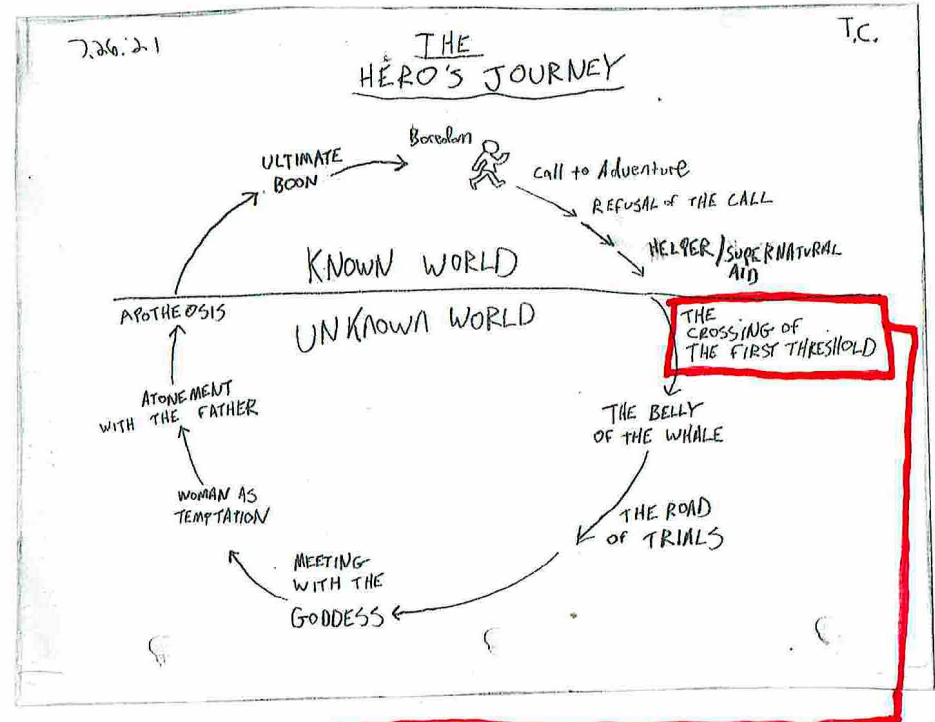 7.26.21
T.C.
THE
HERO'S JOURNEY
Boredom
Call to Adventure
REFUSAL of THE CALL
HELPER/SUPERNATURAL
AID
ULTIMATE
BOON
KNOWN WORLD
UNKNOWN WORLD
THE
CROSSING OF
THE FIRST THRESHOLD
THE BELLY
OF THE WHALE
THE ROAD
of TRIALS
MEETING
WITH THE
GODDESS
WOMAN AS
TEMPTATION
ATONEMENT
WITH THE FATHER
APOTHEOSIS